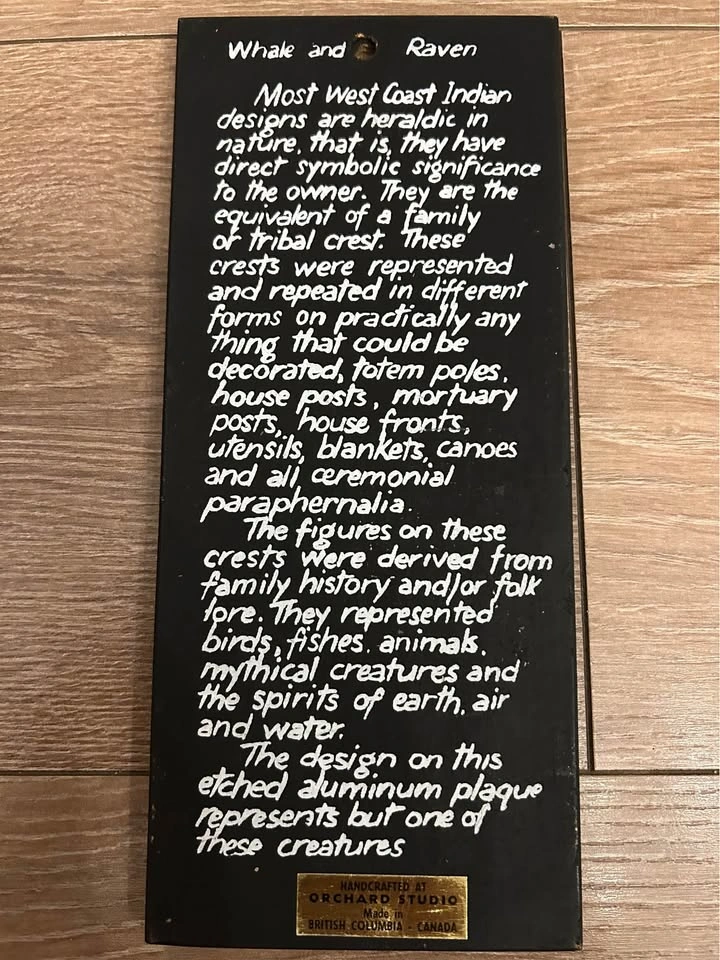 Whale and Raven
Most West Coast Indian
designs are heraldic in
nature, that is, they have
direct symbolic significance
to the owner. They are the
equivalent of a family
or tribal crest. These
crests were represented
and repeated in different
forms on practically any
thing that could be
decorated, totem poles,
house posts, mortuary
posts, house fronts,
utensils, blankets, canoes
and all ceremonial
paraphernalia.
The figures on these
crests were derived from
family history and/or folk
lore. They represented
birds, fishes, animals,
mythical creatures and
the spirits of earth, air
and water.
The design on this
etched aluminum plaque
represents but one of
these creatures
HANDCRAFTED AT
ORCHARD STUDIO
Made in
BRITISH COLUMBIA - CANADA